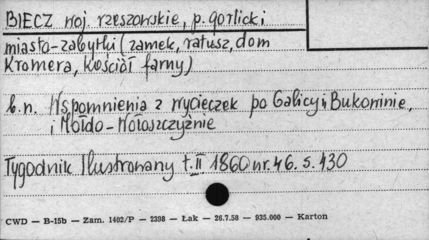 BIECZ woj. rzeszowskie, p. gorlicki
miasto-zabytki (zamek, ratusz, dom
Kromera, kościół farny)
b.n. Wspomnienia z wycieczek po Galicyi, Bukowinie,
i Mołdo-Wołoszczyźnie
Tygodnik Ilustrowany t.II 1860 nr.46. s.430
CWD — B-15b — Zam. 1402/P — 2398 — Łak — 26.7.58 — 935.000 — Karton